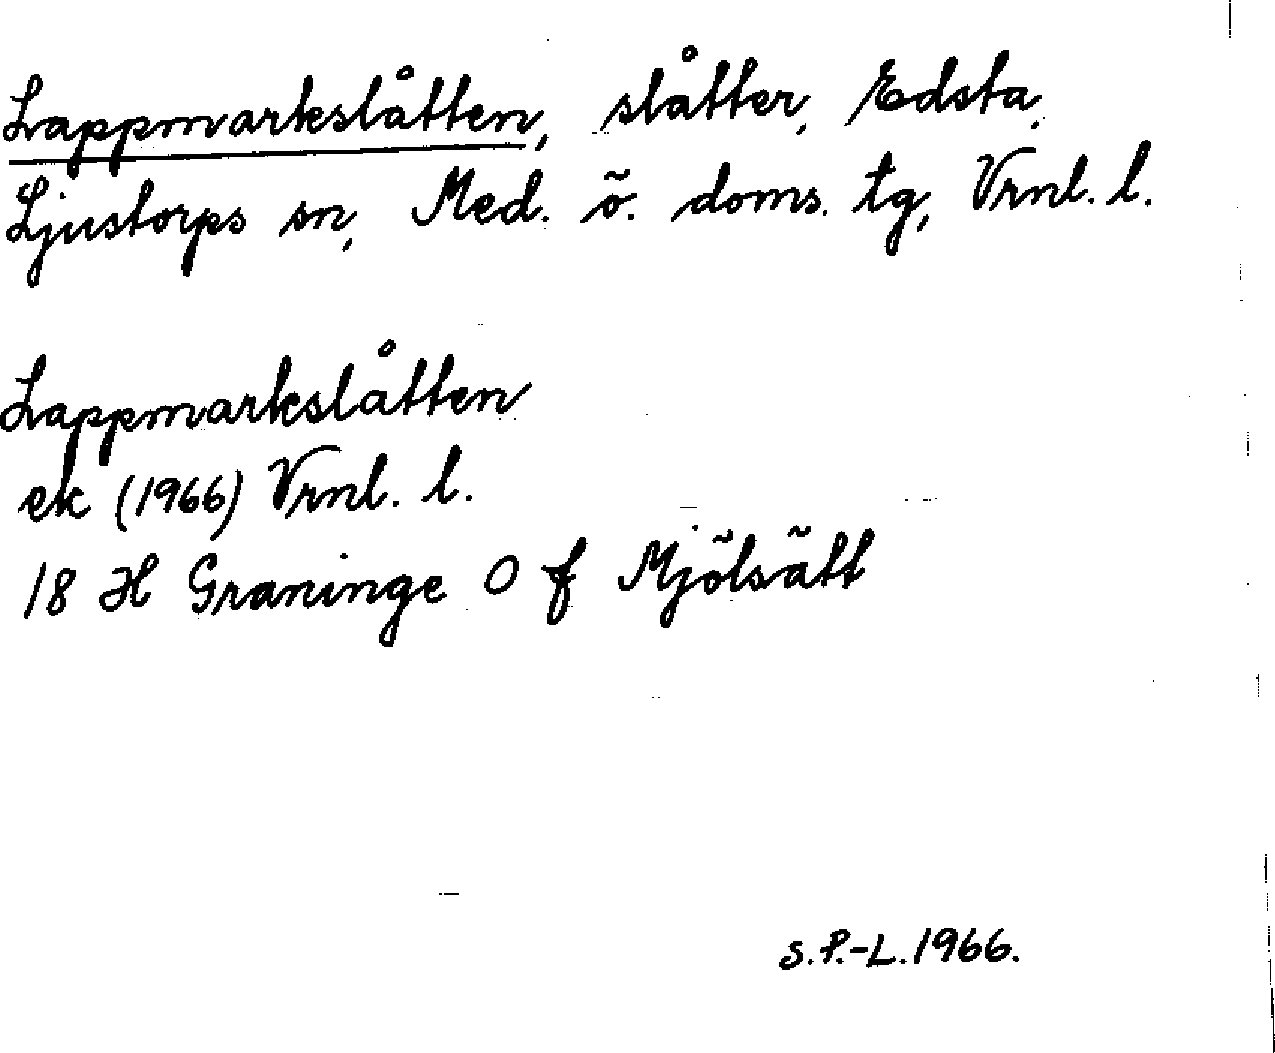 Lappmarkslåtten, slåtter, Edsta,
Ljustorps sn, Med. ö. doms. tg, Vrnl. l.
Lappmarkslåtten
ek (1966) Vrnl. l.
18 H Graninge O f Mjölsätt
S.P.-L. 1966.